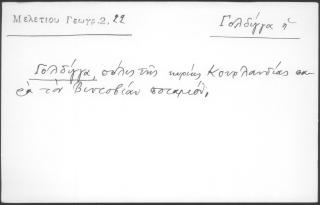 Μελετίου Γεωγρ. 2, 22
Γολδίγγα ἡ
Γολδίγγα, πόλις τῆς κυρίως Κουρλανδίας πα-
ρὰ τὸν Βιντοβίαν ποταμόν.